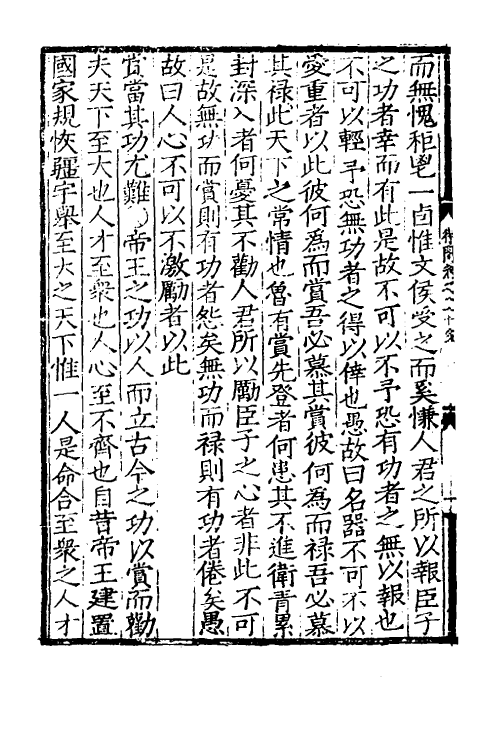 而無愧秬鬯一卣惟文侯受之而奚慊人君之所以報臣子
之功者幸而有此是故不可以不予恐有功者之無以報也
不可以輕予恐無功者之得以倖也愚故曰名器不可不以
愛重者以此彼何為而賞吾必慕其賞彼何為而祿吾必慕
其祿此天下之常情也魯有賞先登者何患其不進衛青累
封深入者何憂其不勸人君所以勵臣子之心者非此不可
是故無功而賞則有功者怨矣無功而祿則有功者倦矣愚
故曰人心不可以不激勵者以此
賞當其功尤難帝王之功以人而立古今之功以賞而勸
夫天下至大也人才至衆也人心至不齊也自昔帝王建置
國家規恢疆宇舉至大之天下惟一人是命合至衆之人才